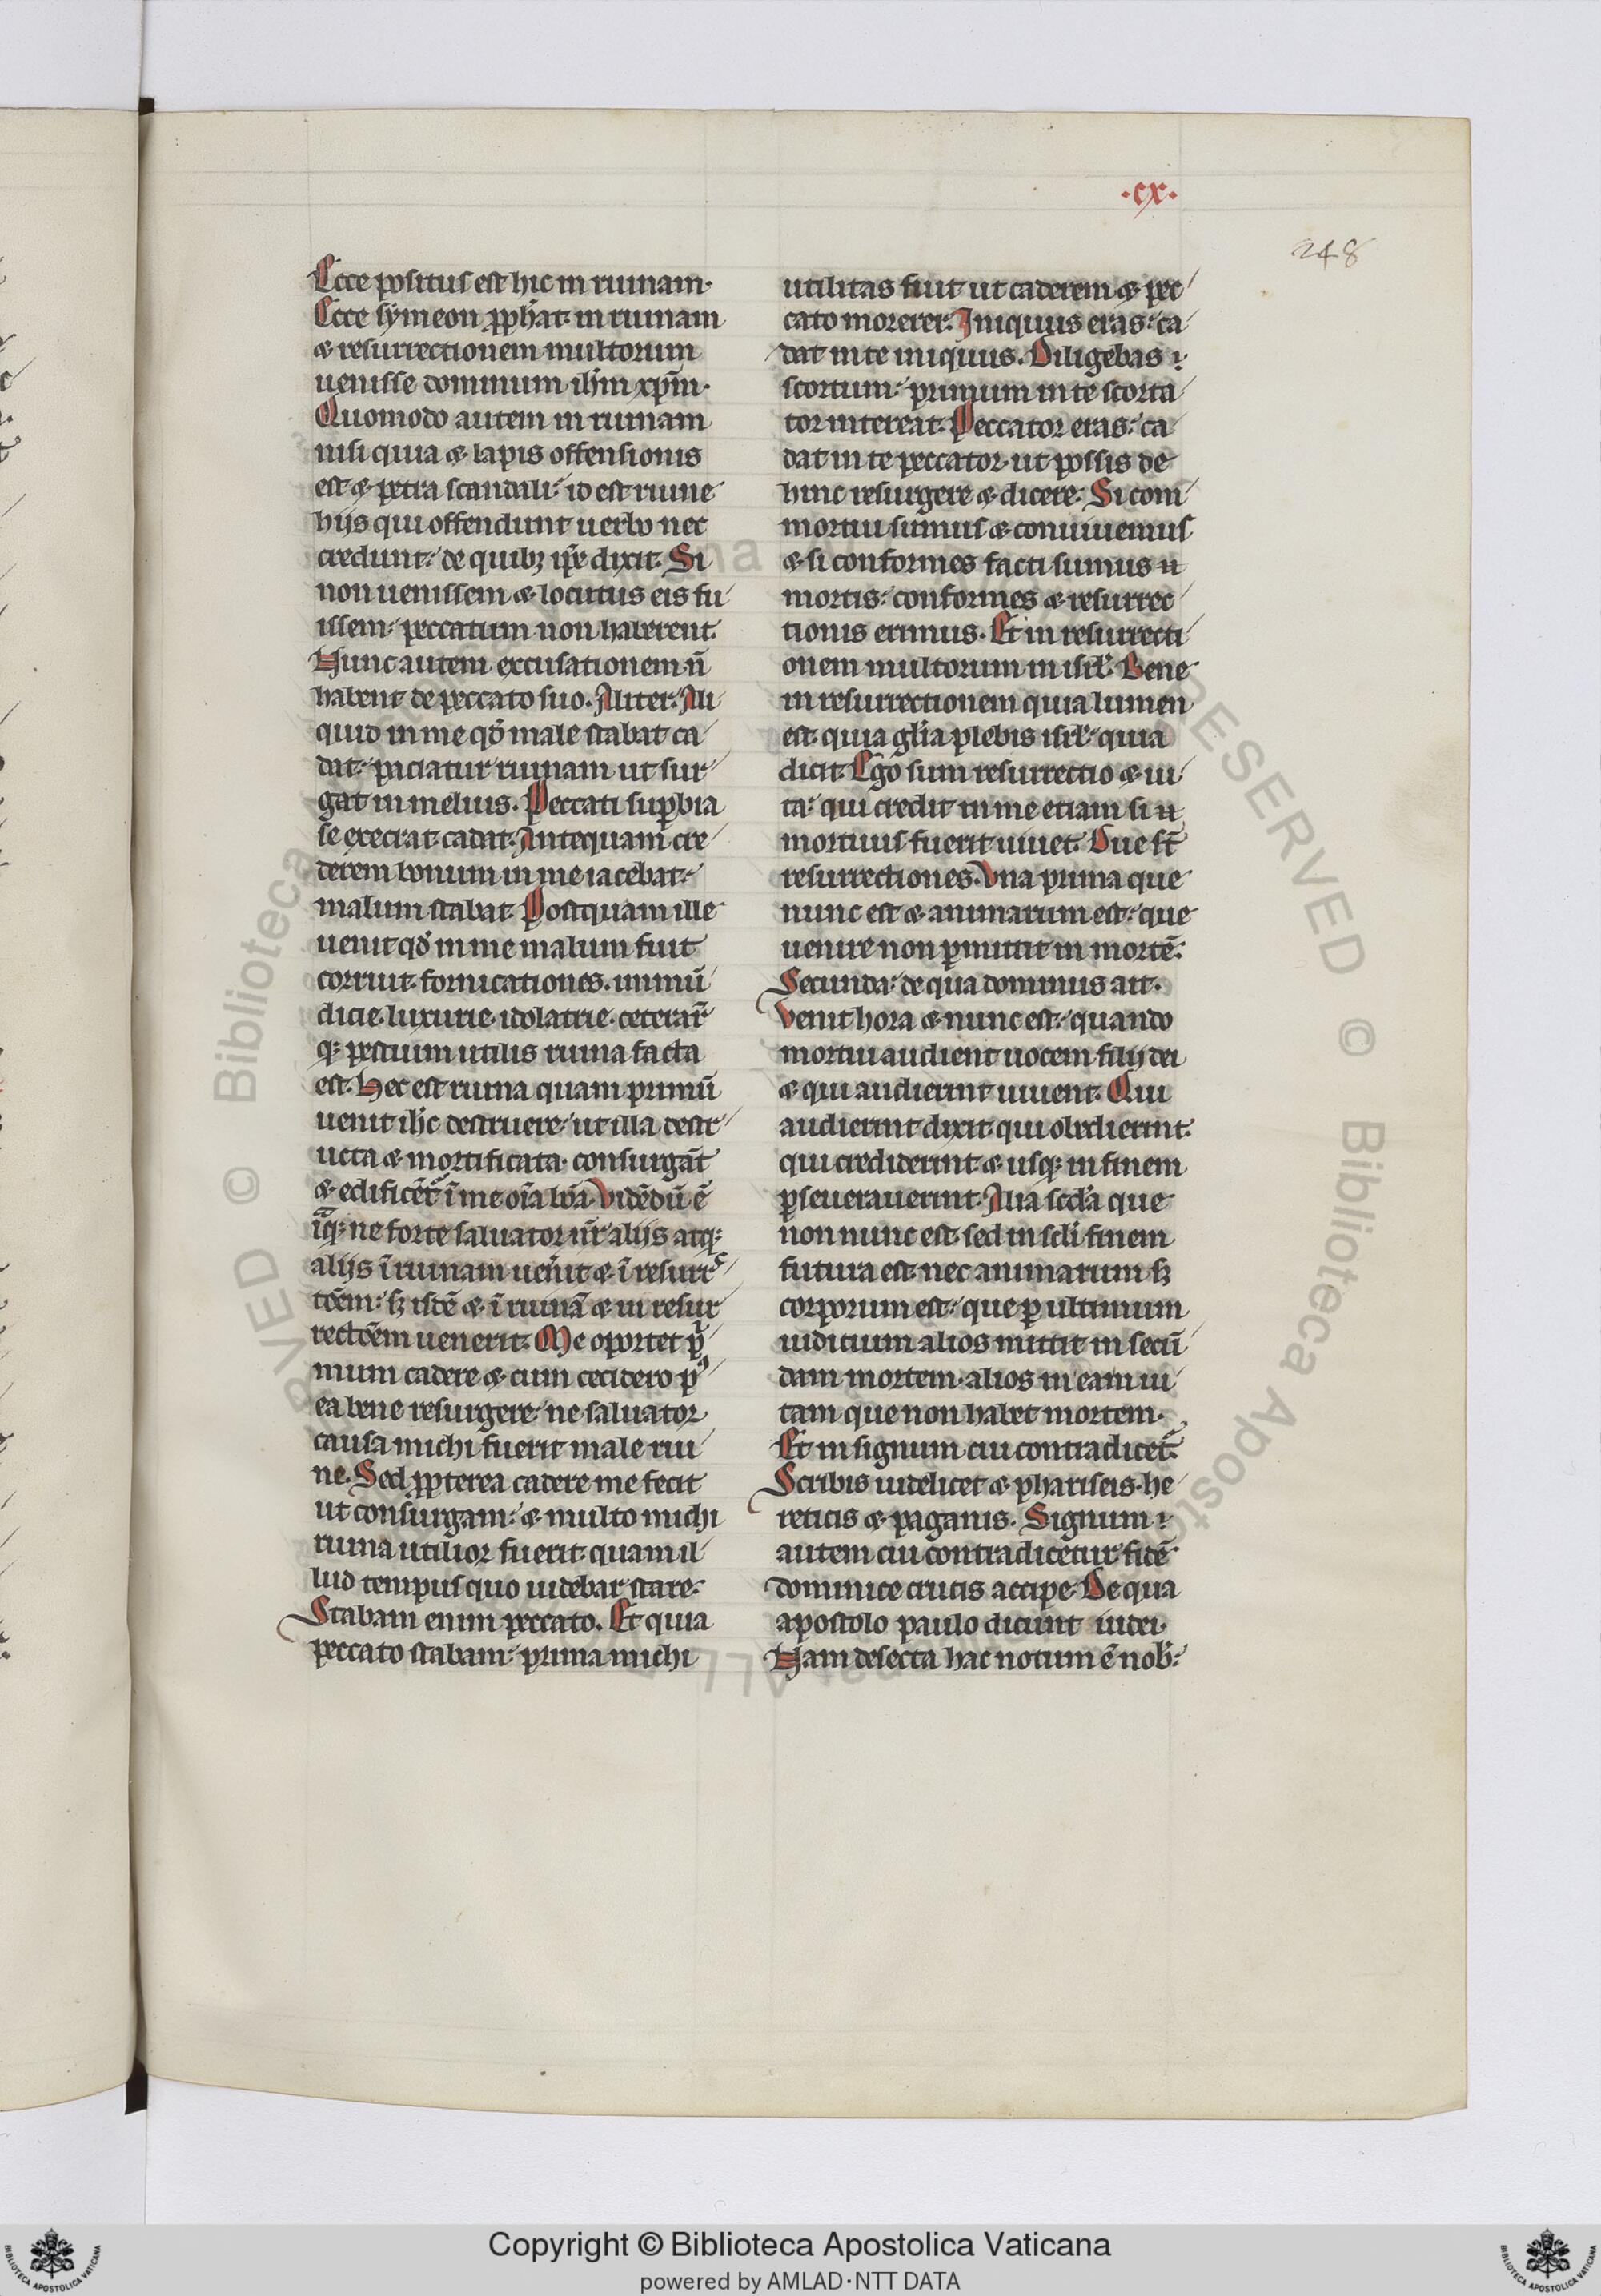 ·cx·
248
Ecce positus est hic in ruinam·
Ecce symeon ꝓph̾at in ruinam
& resurrectionem multorum
uenisse dominum ih̅m xp̅m·
Quomodo autem in ruinam
nisi quia & lapis offensionis
est & petra scandali· id est ruine
hijs qui offendunt uerbo nec
credunt· de quibꝫ ip̅e dixit. Si
non uenissem & locutus eis fu
issem· peccatum non haberent.
Nunc autem excusationem n̅
habent de peccato suo. Aliter. Ali
quid in me qd̾ male stabat ca
dat· paciatur ruinam ut sur
gat in melius. Peccati suꝑbia
se execrat cadat. Antequam cre
derem bonum in me iacebat·
malum stabat. Postquam ille
uenit qd̾ in me malum fuit
corruit. fornicationes. immu̅
dicie. luxurie. idolatrie. ceterar̅
qꝫ pestium utilis ruina facta
est. Hec est ruina quam primu̅
uenit ih̅c destruere· ut illa destr
ucta & mortificata· consurga̅t
& edifice̅t̾ i̅ me oi̅a bo̅a. Vide̅du̅ e̅
itaqꝫ ne forte saluator nr̅ alijs atqꝫ
alijs i̅ ruinam uen̾it & i̅ resurr
c̅oem· sꝫ iisde̅ & i̅ ruina̅ & in resur
rectc̅oem uenerit. Me oportet p̾
mum cadere & cum cecidero pꝰ
ea bene resurgere· ne saluator
causa michi fuerit male rui
ne. Sed ꝓpterea cadere me fecit
ut consurgam· & multo michi
ruina utilior fuerit quam il
lud tempus quo uidebar stare·
Stabam enim peccato. Et quia
peccato stabam· prima michi
utilitas fuit ut caderem & pec
cato morerer. Iniquus eras· ca
dat in te iniquus. Diligebas
scortum· primum in te scorta
tor intereat. Peccator eras· ca
dat in te peccator· ut possis de
hinc resurgere & dicere. Si com
mortui sumus & conuiuemus
& si conformes facti sumus
mortis· conformes & resurrec
tionis erimus. Et in resurrecti
onem multorum in isrl̅. Bene
in resurrectionem quia lumen
est· quia gl̅ia plebis isrl̅· quia
dicit. Ego sum resurrectio & ui
ta· qui credit in me etiam si
mortuus fuerit uiuet. Due st̅
resurrectiones. Vna prima que
nunc est & animarum est· que
uenire non ꝑmittit in morte̅.
Secunda· de qua dominus ait.
Venit hora & nunc est· quando
mortui audient uocem filij dei
& qui audierint uiuent. Qui
audierint dixit· qui obedierint.
qui crediderint & usqꝫ in finem
ꝑseuerauerint. Alia scd̅a que
non nunc est· sed in scl̅i finem
futura est· nec animarum sꝫ
corporum est· que ꝑ ultimum
iudicium alios mittit in secu̅
dam mortem· alios in eam ui
tam que non habet mortem·
Et in signum cui contradicet̾.
Scribis uidelicet & phariseis· he
reticis & paganis. Signum
autem cui contradicetur fide̅
dominice crucis accipe. De qua
apostolo paulo dicunt iudei·
Nam de secta hac notum e̅ nob̾·
Copyright © Biblioteca Apostolica Vaticana
powered by AMLAD·NTT DATA